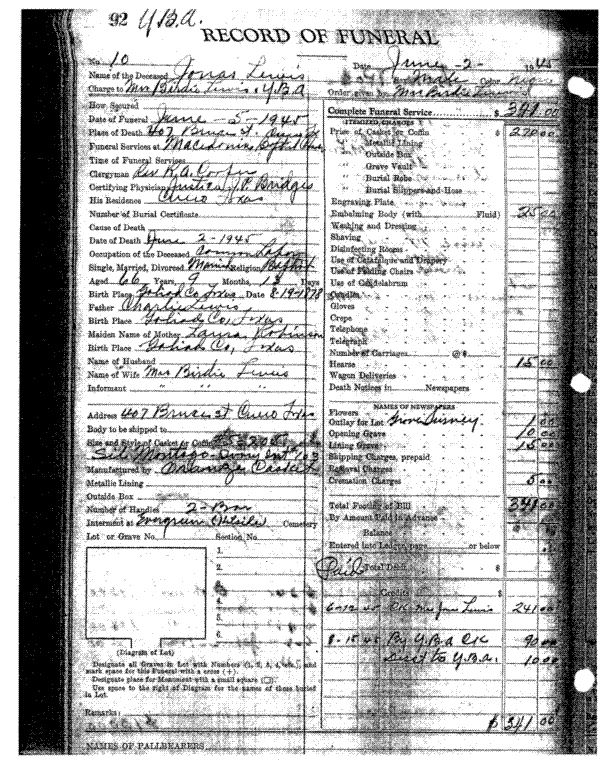 92 Y.B.A.
RECORD OF FUNERAL
No. 10
Date June -2- 1945
Name of the Deceased Jonas Lewis
Male Color
Charge to Mrs Birdie Lewis & Y.B.A
Order given by Mrs Birdie
How Secured
Date of Funeral June - 5 - 1945
Place of Death 407 Bruce st.
Funeral Services at Macedonia
Time of Funeral Services
Clergyman Rev R.A. Cooper
Certifying Physician Justice J.P. Bridges
His Residence Cuero Texas
Number of Burial Certificate
Cause of Death
Date of Death June 2-1945
Occupation of the Deceased Common Labor
Single, Married, Divorced Married Religion Baptist
Aged 66 Years, 9 Months, 13 Days
Birth Place Goliad Co, Texas Date 8-19-1878
Father Charlie Lewis
Birth Place Goliad Co, Texas
Maiden Name of Mother Laura Robinson
Birth Place Goliad Co, Texas
Name of Husband
Name of Wife Mrs Birdie Lewis
Informant " " "
Address 407 Bruce st Cuero Texas
Body to be shipped to
Size and Style of Casket or Coffin
Manufactured by Casket
Metallic Lining
Outside Box
Number of Handles 2-Bar
Interment at Evergreen Hillside Cemetery
Lot or Grave No. Section No.
1.
2.
3.
4.
5.
6.
(Diagram of Lot)
Designate all Graves in Lot with Numbers (1, 2, 3, 4, etc.), and
mark space for this Funeral with a cross (+).
Designate place for Monument with a small square (□).
Use space to the right of Diagram for the names of those buried
in Lot.
Remarks:
NAMES OF PALLBEARERS
Complete Funeral Service $ 341 00
ITEMIZED CHARGES
Price of Casket or Coffin $ 270 00
" Metallic Lining
" Outside Box
" Grave Vault
" Burial Robe
" Burial Slippers and Hose
Engraving Plate
Embalming Body (with Fluid) 25 00
Washing and Dressing
Shaving
Disinfecting Rooms
Use of Catafalque and Drapery
Use of Folding Chairs
Use of Candelabrum
Candles
Gloves
Crepe
Telephone
Telegraph
Number of Carriages @ $
Hearse 15 00
Wagon Deliveries
Death Notices in Newspapers
NAMES OF NEWSPAPERS
Flowers
Outlay for Lot 1 00
Opening Grave 10 00
Lining Grave 15 00
Shipping Charges, prepaid
Removal Charges
Cremation Charges 5 00
Total Footing of Bill 341 00
By Amount Paid in Advance
Balance
Entered into Ledger, page or below
Paid Total Debit $
Credits $
6-12-45 CK. Mrs Jonas Lewis 241 00
8-15-45 By Y.B.A CK 90 00
Disct to Y.B.A. 10 00
$ 341 00